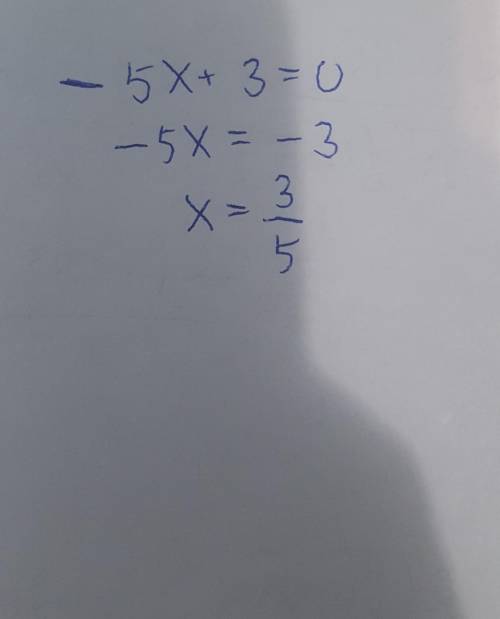 - 5x + 3 = 0
-5x = -3
x = 3/5